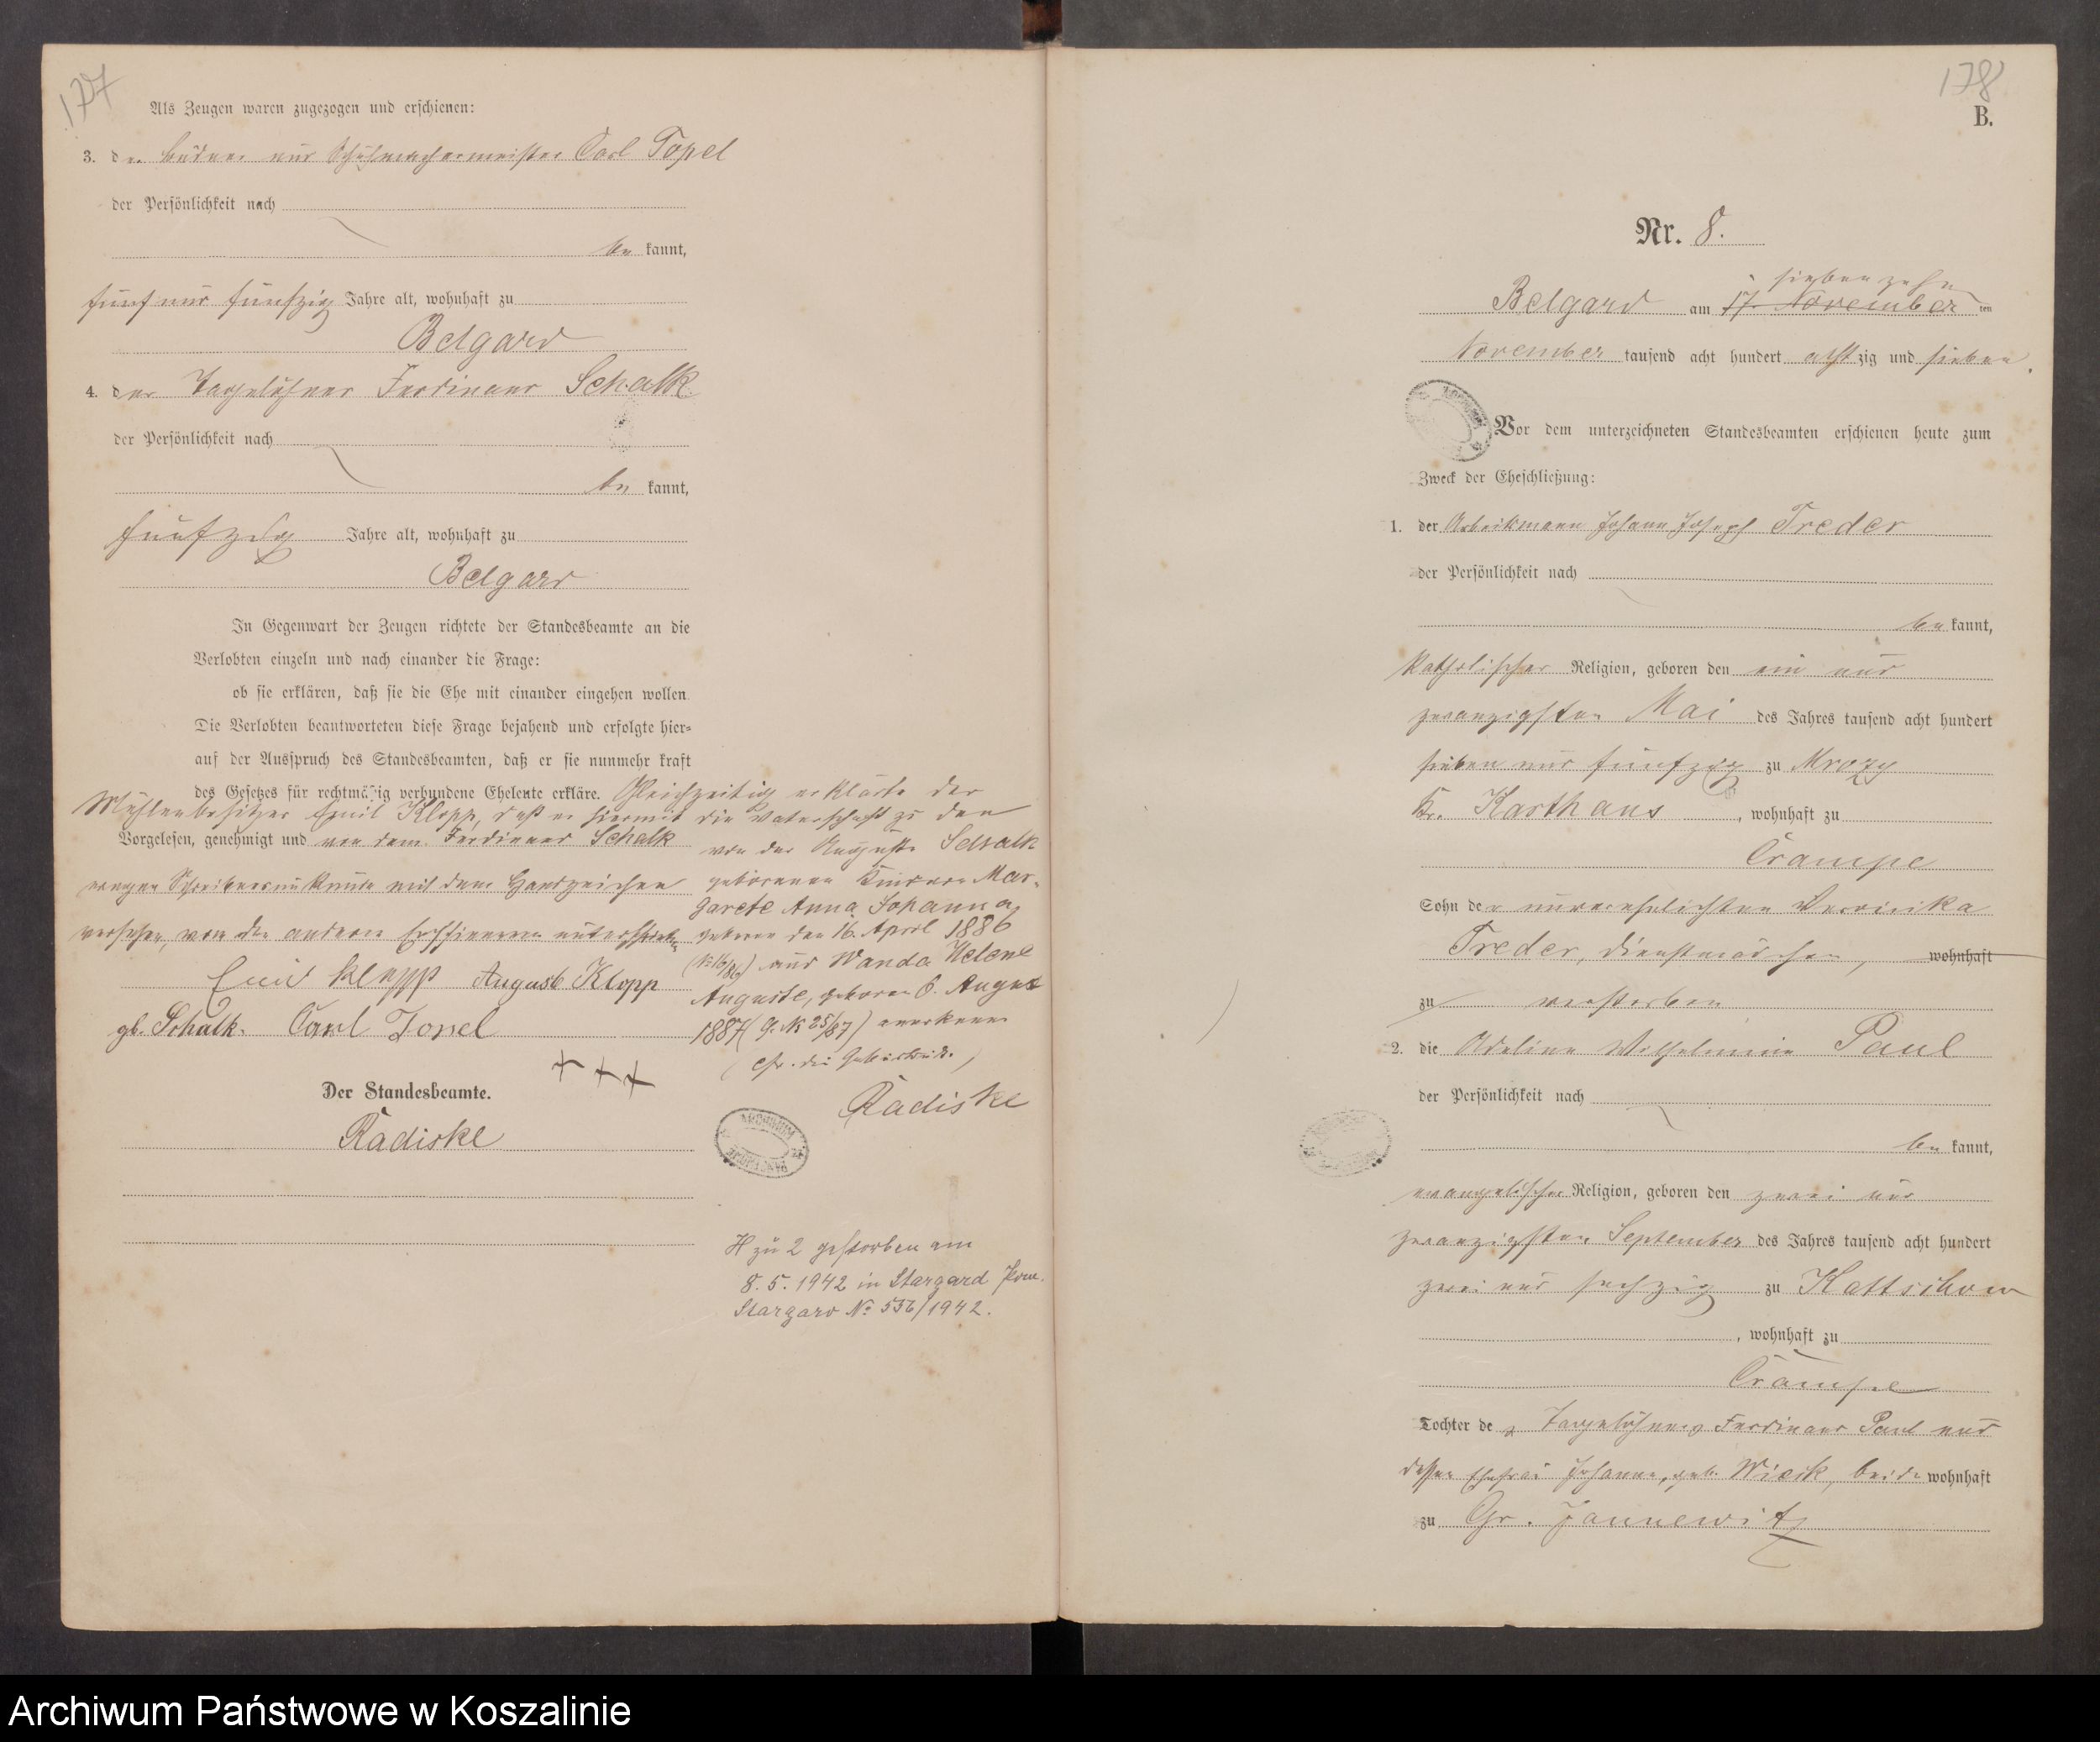 177
Als Zeugen waren zugezogen und erschienen:
3. der Büdner und Schuhmachermeister Carl Topel
der Persönlichkeit nach
be kannt,
fünf und fünfzig Jahre alt, wohnhaft zu
Belgard
4. der Tagelöhner Ferdinand Schalk
der Persönlichkeit nach
be kannt,
fünfzig Jahre alt, wohnhaft zu
Belgard
In Gegenwart der Zeugen richtete der Standesbeamte an die
Verlobten einzeln und nach einander die Frage:
ob sie erklären, daß sie die Ehe mit einander eingehen wollen
Die Verlobten beantworteten diese Frage bejahend und erfolgte hier-
auf der Ausspruch des Standesbeamten, daß er sie nunmehr kraft
des Gesetzes für rechtmäßig verbundene Eheleute erkläre. Gleichzeitig erklärte der
Mühlenbesitzer Emil Klopp, daß er hiermit die Vaterschaft zu den
von der Auguste Schalk
geborenen Kindern Mar-
garete Anna Johanna,
geboren den 16. April 1886
(No 16/86) und Wanda Helene
Auguste, geboren 6. August
1887 (G. N 25/87) anerkenne
Radiske
Vorgelesen, genehmigt und von dem Ferdinand Schalk
wegen Schreibensunkunde mit dem Handzeichen
versehen, von den andern Erschienenen unterschrieben
Emil Klopp August Klopp
gb. Schalk. Carl Topel
+++
Der Standesbeamte.
Radiske
ARCHIWUM
H zu 2 gestorben am
8. 5. 1942 in Stargard Pom.
Stargard No 556/1942.
178
B.
Nr. 8.
siebenzehn
Belgard am 17. November ten
November tausend acht hundert achtzig und sieben.
Vor dem unterzeichneten Standesbeamten erschienen heute zum
Zweck der Eheschließung:
1. der Arbeitsmann Johann Joseph Treder
der Persönlichkeit nach
be kannt,
katholischer Religion, geboren den ein und
zwanzigsten Mai des Jahres tausend acht hundert
sieben und fünfzig zu Mrozy
Kr. Karthaus, wohnhaft zu
Crampe
Sohn der unverehelichten Veronika
Treder, Dienstmädchen, wohnhaft
zu verstorben
2. die Adeline Wilhelmine Paul
der Persönlichkeit nach
be kannt,
evangelischer Religion, geboren den zwei und
zwanzigsten September des Jahres tausend acht hundert
zwei und sechzig zu Kattschow
, wohnhaft zu
Crampe
Tochter des Tagelöhners Ferdinand Paul und
dessen Ehefrau Johanne, geb. Wieck, beide wohnhaft
zu Gr. Jannewitz
Archiwum Państwowe w Koszalinie